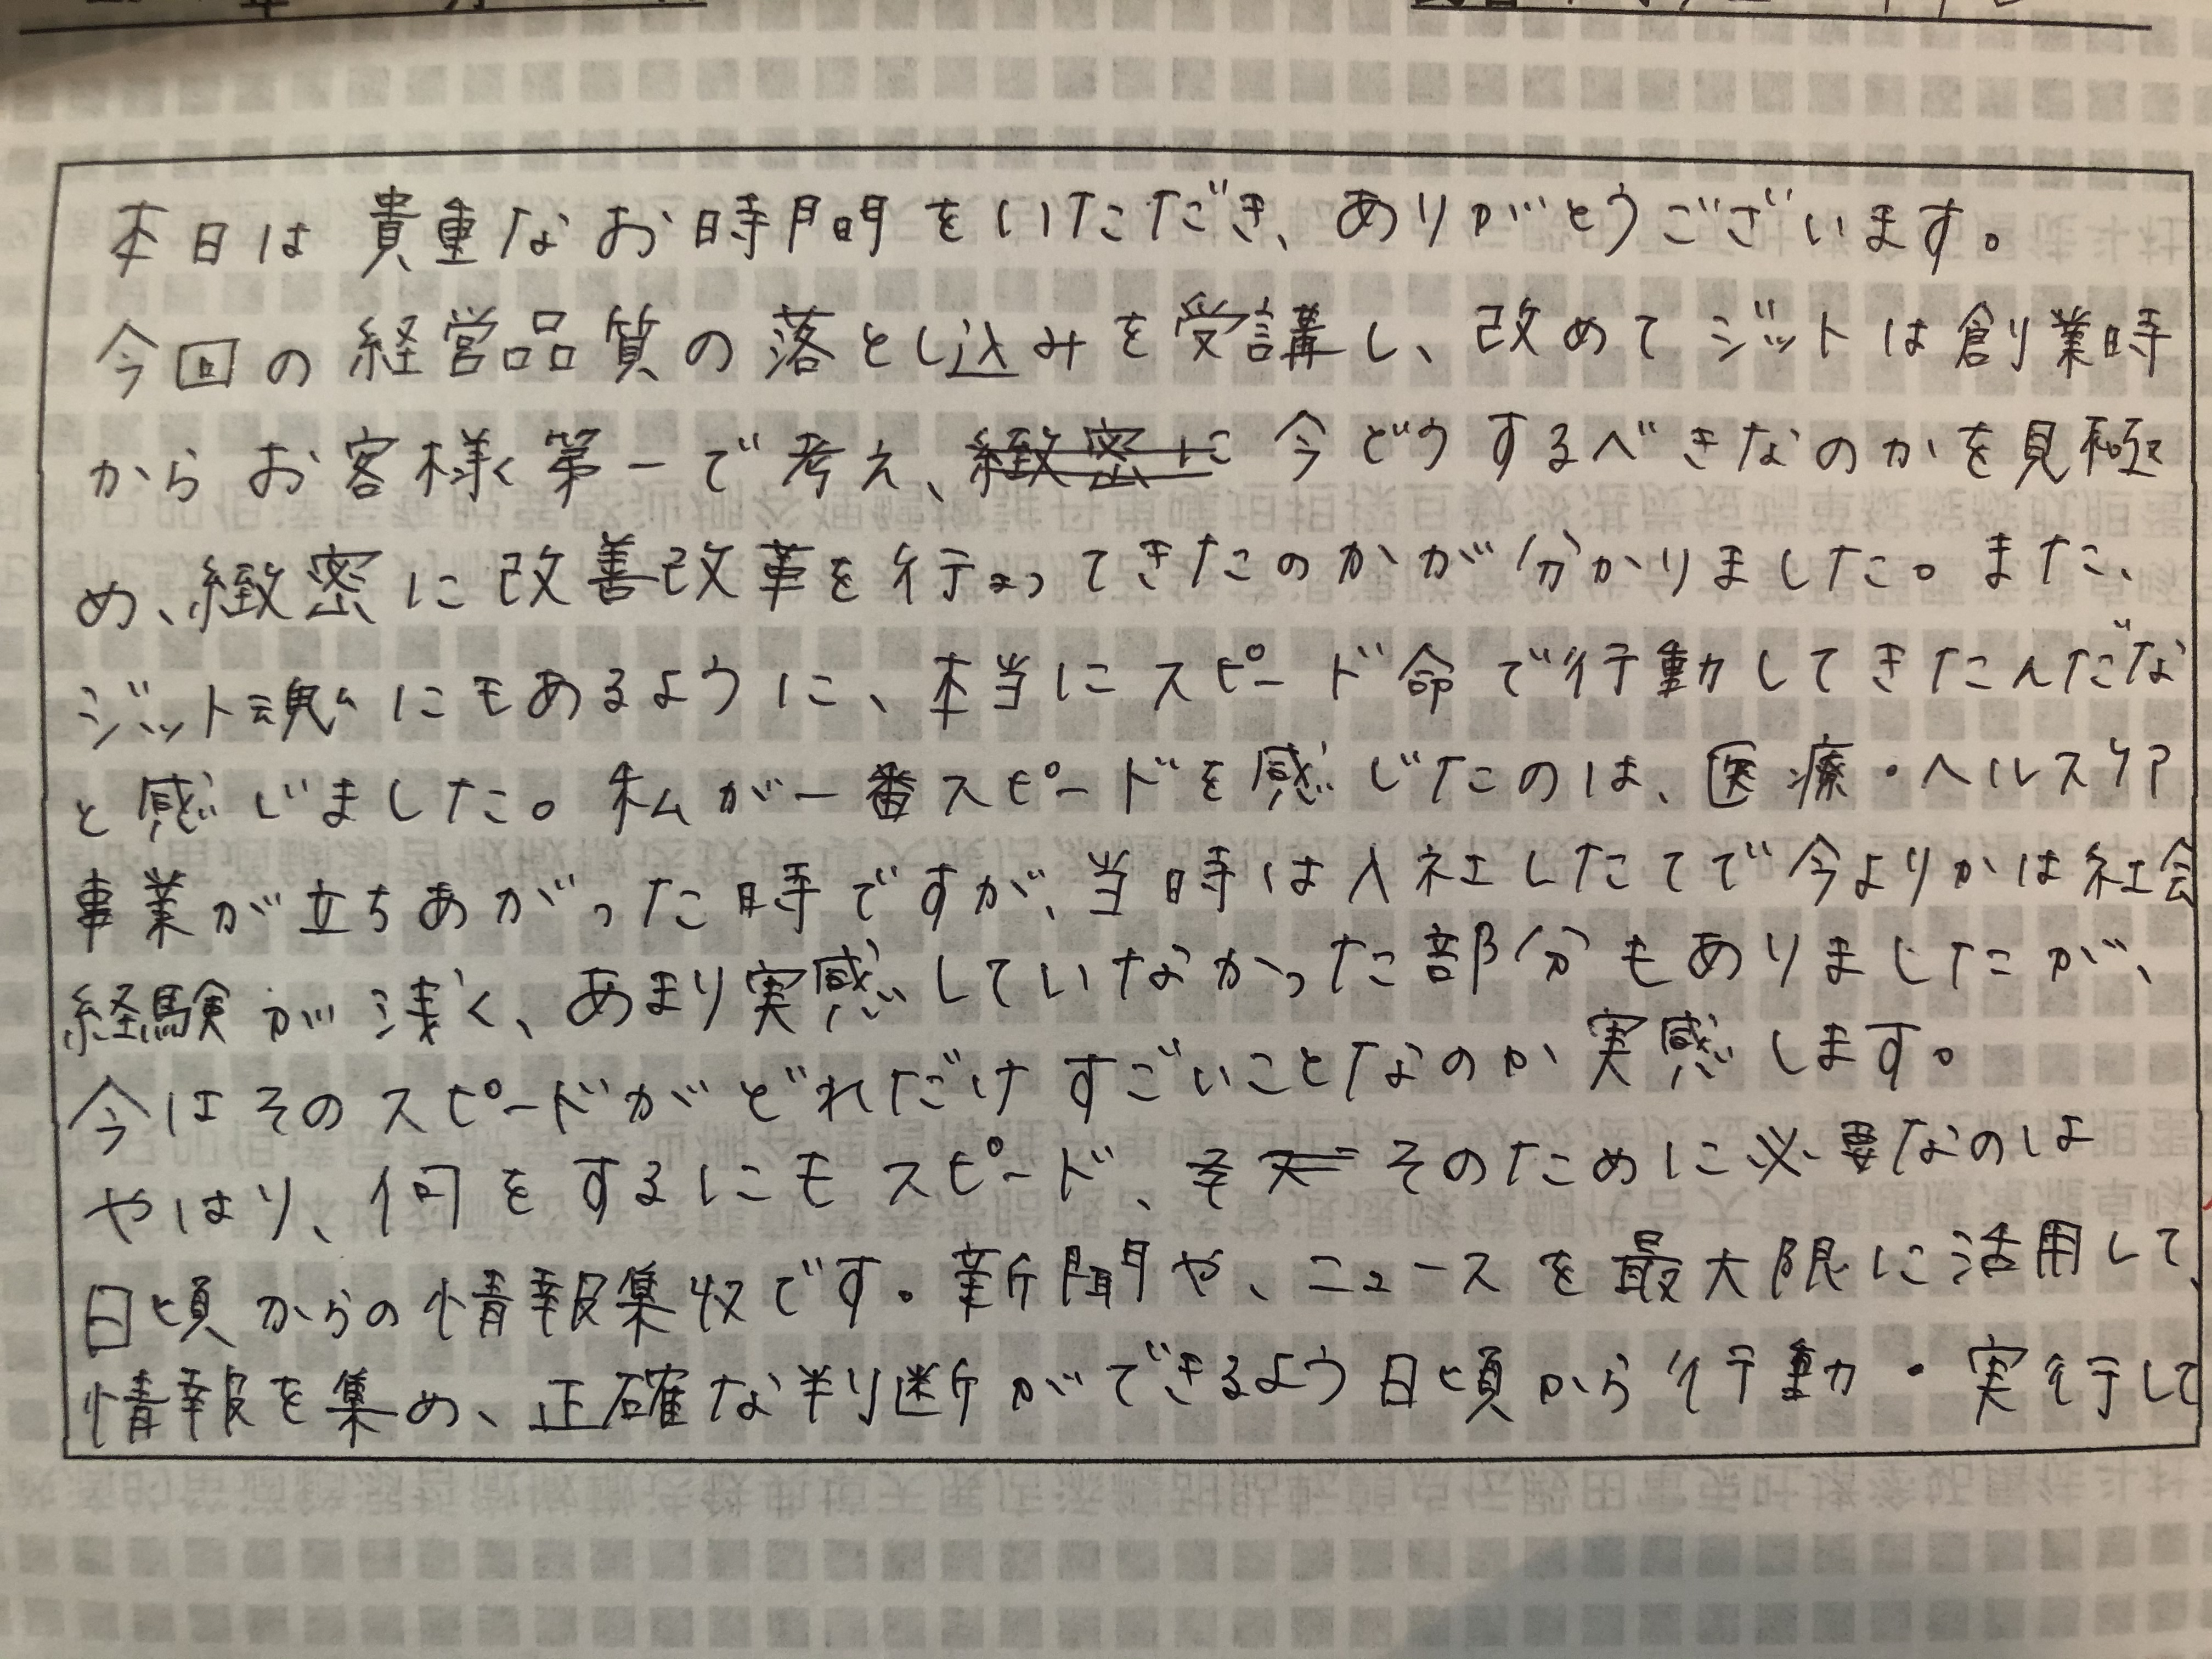 本日は貴重なお時間をいただだき、ありがとうございます。
今回の経営品質の落とし込みを受講し、改めてジットは創業時
からお客様第一で考え、緻密に今どうするべきなのかを見極
め、緻密に改善改革を行なってきたのかが分かりました。また、
ジット魂にもあるように、本当にスピード命で行動してきたんだな
と感じました。私が一番スピードを感じたのは、医療・ヘルスケア
事業が立ちあがった時ですが、当時は入社したてで今よりかは社会
経験が浅く、あまり実感していなかった部分もありましたが、
今はそのスピードがどれだけすごいことなのか実感します。
やはり、何をするにもスピード、そのために必要なのは
日頃からの情報集収です。新聞や、ニュースを最大限に活用して、
情報を集め、正確な判断ができるよう日頃から行動・実行して